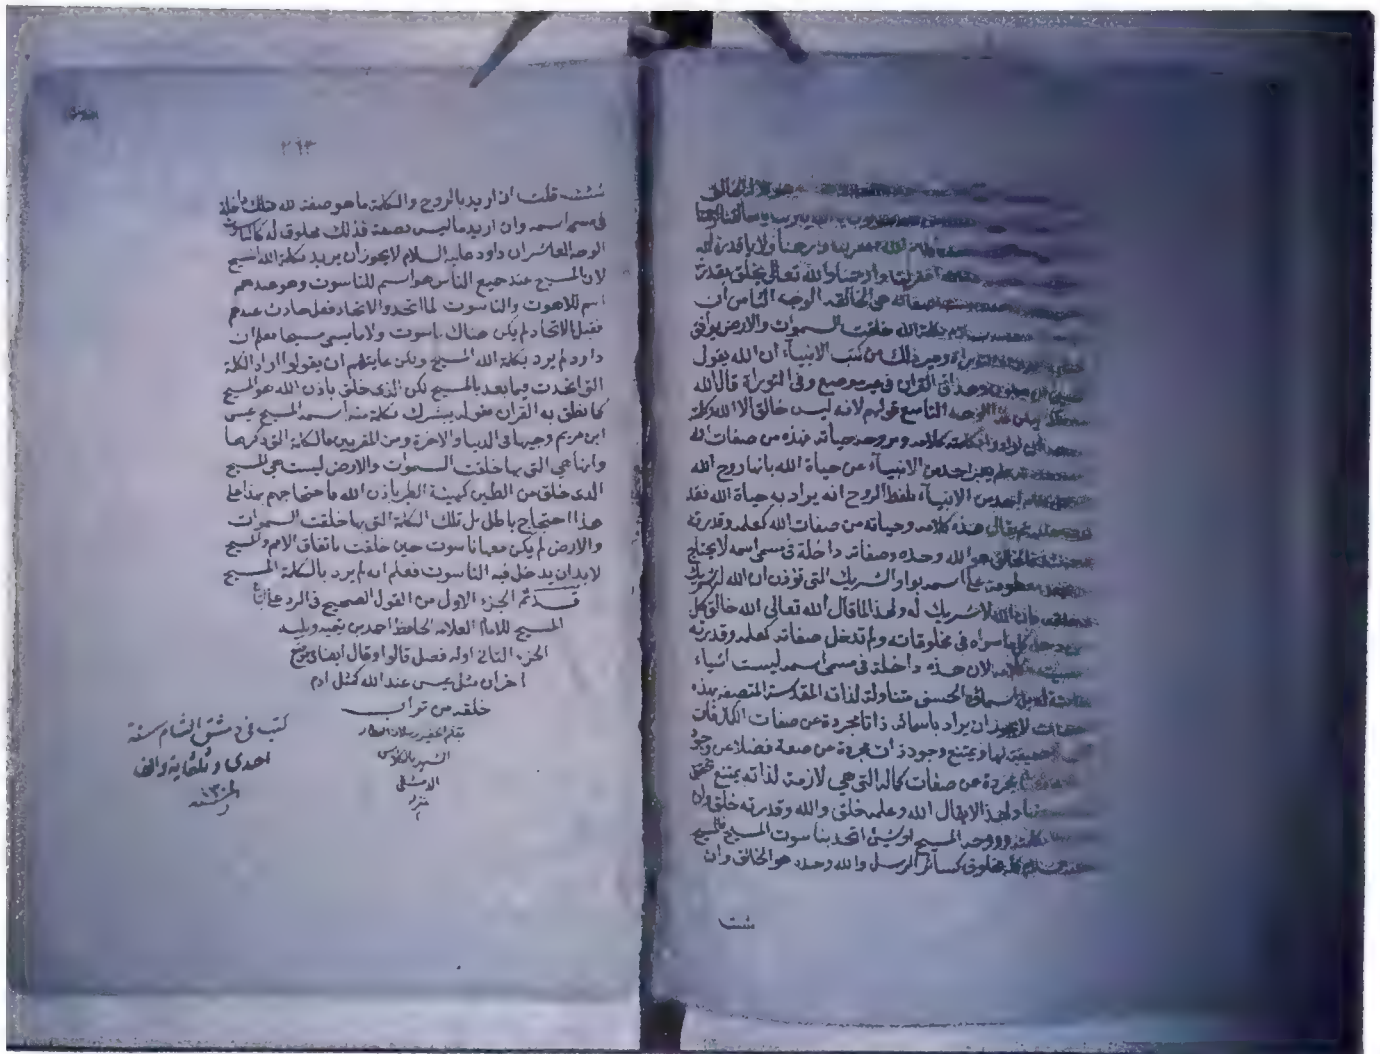 هو الخالق
يا رب يا خالقنا ارحمنا
الله اغفر لنا وارحمنا ولا يا قدرة الله
اغفر لنا وارحمنا والله تعالى يخلق بقدرته
صفاته هي الخالقة الوجه الثامن ان
بكلمة الله خلقت السموات والارض يوافق
التوراة وغير ذلك من كتب الانبياء ان الله يقول
وهذا في القران في غير موضع وفي التوراة قال الله
الوجه التاسع قولهم لانه ليس خالق الا الله وكلمته
بكلمته كلامه وبروحه حياته فهذه من صفات الله
لم يعبر احد من الانبياء عن حياة الله بانها روح الله
احد من الانبياء بلفظ الروح انه يراد به حياة الله فقد
يقال هذه كلامه وحياته من صفات الله كعلمه وقدرته
فالخالق هو الله وحده وصفاته داخلة في مسمى اسمه لا يحتاج
معطوفة على اسمه بواو الشريك التي تؤذن ان الله له شريك
فان الله لا شريك له ولهذا لما قال الله تعالى الله خالق كل
كل ما سواه في مخلوقاته ولم تدخل صفاته كعلمه وقدرته
لان هذه داخلة في مسمى اسمه ليست اشياء
بل اسماؤه الحسنى متناولة لذاته المقدسة المتصفة بهذه
لا يجوز ان يراد باسمائه ذاتا مجردة عن صفات الكمال فان
حقيقة لها ويمتنع وجود ذات مجردة عن صفة فضلا عن وجود
مجردة عن صفات كماله التي هي لازمة لذاته يمتنع تحقق
ولهذا لا يقال الله وعلمه خلق والله وقدرته خلق وان
بكلمته وروحه المسيح او شيئ اتحد بناسوت المسيح فالمسيح
مخلوق كسائر الرسل والله وحده هو الخالق وان
شئت
٢٦٣
شئت قلت ان اريد بالروح والكلمة ما هو صفة لله فتلك داخلة
في مسمى اسمه وان اريد ما ليس بصفة فذلك مخلوق له كالناسوت
الوجه العاشر ان داود عليه السلام لا يجوز ان يريد بكلمة الله المسيح
لان المسيح عند جميع الناس هو اسم للناسوت وهو عندهم
اسم للاهوت والناسوت لما اتحد والاتحاد فعل حادث عندهم
فقبل الاتحاد لم يكن هناك ناسوت ولا ما يسمى مسيحا فعلم ان
داود لم يرد بكلمة الله المسيح ولكن غايتهم ان يقولوا اراد الكلمة
التي اتحدت فيما بعد بالمسيح لكن الذي خلق باذن الله هو المسيح
كما نطق به القران بقوله يبشرك بكلمة منه اسمه المسيح عيسى
ابن مريم وجيها في الدنيا والاخرة ومن المقربين فالكلمة التي ذكرها
وانها هي التي بها خلقت السموات والارض ليست هي المسيح
الذي خلق من الطين كهيئة الطير باذن الله فاحتجاجهم بهذا على
هذا احتجاج باطل بل تلك الكلمة التي بها خلقت السموات
والارض لم يكن معها ناسوت حين خلقت باتفاق الامم والمسيح
لا بد ان يدخل فيه الناسوت فعلم انه لم يرد بالكلمة المسيح
قد تم الجزء الاول من القول الصحيح في الرد على اتباع
المسيح للامام العلامة الحافظ احمد بن تيميه ويليه
الجزء الثاني اوله فصل قالوا وقال ايضا في موضع
اخر ان مثل عيسى عند الله كمثل ادم
خلقه من تراب
بقلم الحقير رسلان العطار
الدمشقي
كتب في دمشق الشام سنة
احدى وثلثماية والف
١٣٠١